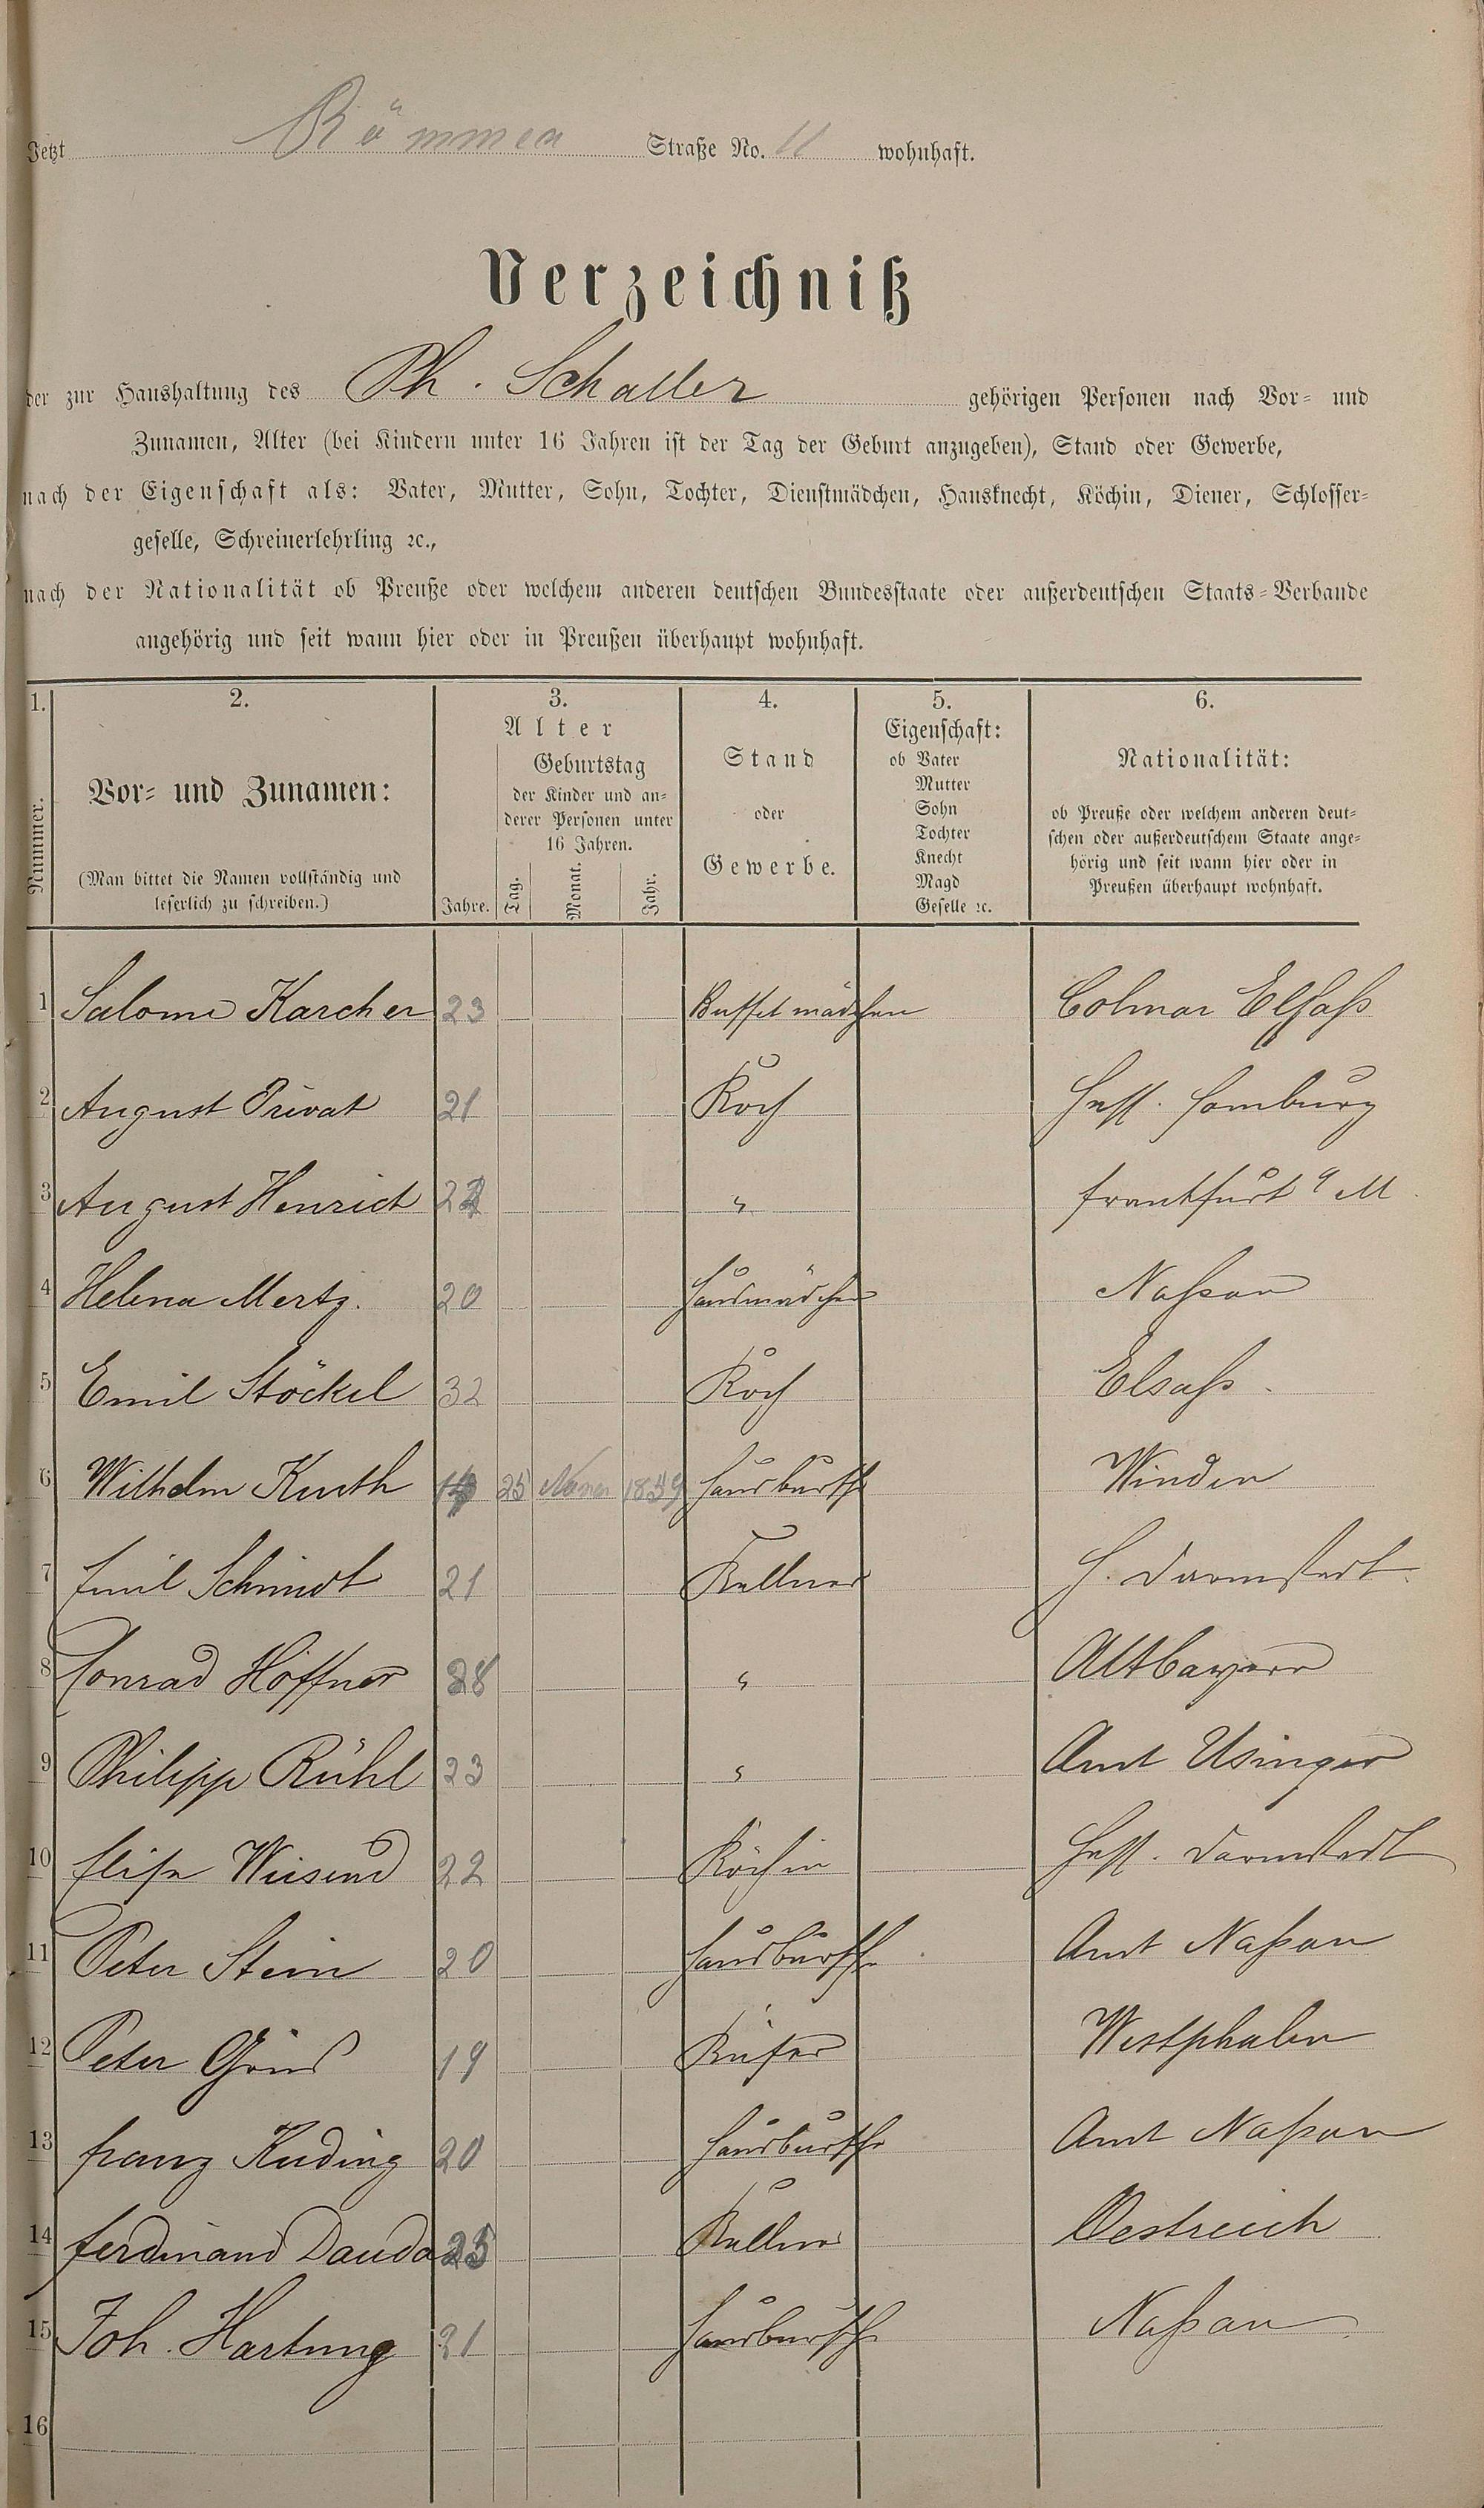 Jetzt Römmer Straße No. 11 wohnhaft.
Verzeichniß
der zur Haushaltung des Ph. Schaller gehörigen Personen nach Vor- und
Zunamen, Alter (bei Kindern unter 16 Jahren ist der Tag der Geburt anzugeben), Stand oder Gewerbe,
nach der Eigenschaft als: Vater, Mutter, Sohn, Tochter, Dienstmädchen, Hausknecht, Köchin, Diener, Schlosser-
geselle, Schreinerlehrling ꝛc.,
nach der Nationalität ob Preuße oder welchem anderen deutschen Bundesstaate oder außerdeutschen Staats-Verbande
angehörig und seit wann hier oder in Preußen überhaupt wohnhaft.
1. 2. 3. 4. 5. 6.
Nummer.
Vor- und Zunamen:
(Man bittet die Namen vollständig und
leserlich zu schreiben.)
Alter
Geburtstag
der Kinder und an-
derer Personen unter
16 Jahren.
Jahre. Tag. Monat. Jahr.
Stand
oder
Gewerbe.
Eigenschaft:
ob Vater
Mutter
Sohn
Tochter
Knecht
Magd
Geselle ꝛc.
Nationalität:
ob Preuße oder welchem anderen deut-
schen oder außerdeutschem Staate ange-
hörig und seit wann hier oder in
Preußen überhaupt wohnhaft.
1 Salome Karcher 23 Buffetmädchen Colmar Elsaß
2 August Privat 21 Koch Hess. Homburg
3 August Henrich " Frankfurt a M
4 Helena Mertz. 20 Hausmädchen Naßau
5 Emil Stöckel 32 Koch Elsaß.
6 Wilhelm Kurth 25 1859 Hausbursche Winden
7 Emil Schmidt 21 Kellner H. Darmstadt
8 Conrad Höffner 28 " Altbayern
9 Philipp Rühl 23 " Amt Usingen
10 Elise 22 Köchin Hess. Darmstadt
11 Peter Stein 20 Hausbursche Amt Naßau
12 Peter 19 Küfer Westphalen
13 Franz Kuding 20 Hausbursche Amt Naßau
14 Ferdinand Dauda 25 Kellner Oestreich
15 Joh. Hartung 21 Hausbursche Naßau
16